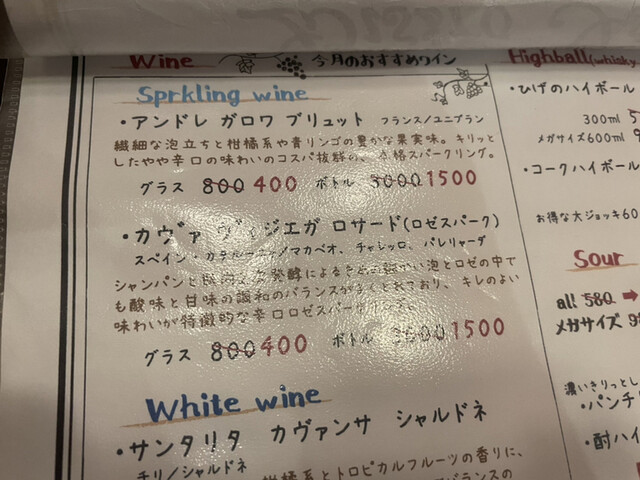 Wine
今月のおすすめワイン
Sprkling wine
・アンドレ ガロワ ブリュット フランス/ユニブラン
繊細な泡立ちと柑橘系や青リンゴの豊かな果実味。キリッと
したやや辛口の味わいのコスパ抜群の、本格スパークリング。
グラス 800 400 ボトル 3000 1500
・カヴァ ヴィジエガ ロサード(ロゼスパーク)
スペイン・カタルーニャ/マカベオ、チャレッロ、パレリャーダ
シャンパンと 発酵による 泡とロゼの中で
も酸味と甘味の調和のバランスが とれており、キレのよい
味わいが特徴的な辛口ロゼスパー
グラス 800 400 ボトル 3000 1500
White wine
・サンタリタ カヴァンサ シャルドネ
チリ/シャルドネ
柑橘系とトロピカルフルーツの香りに、
バランスの
Highball(whisky
・ひげのハイボール
300ml 5
メガサイズ600ml 9
・コークハイボール
お得な大ジョッキ60
Sour
all 580 ➡
メガサイズ 9
濃いきりっとし
・パンチリ
・酎ハイ